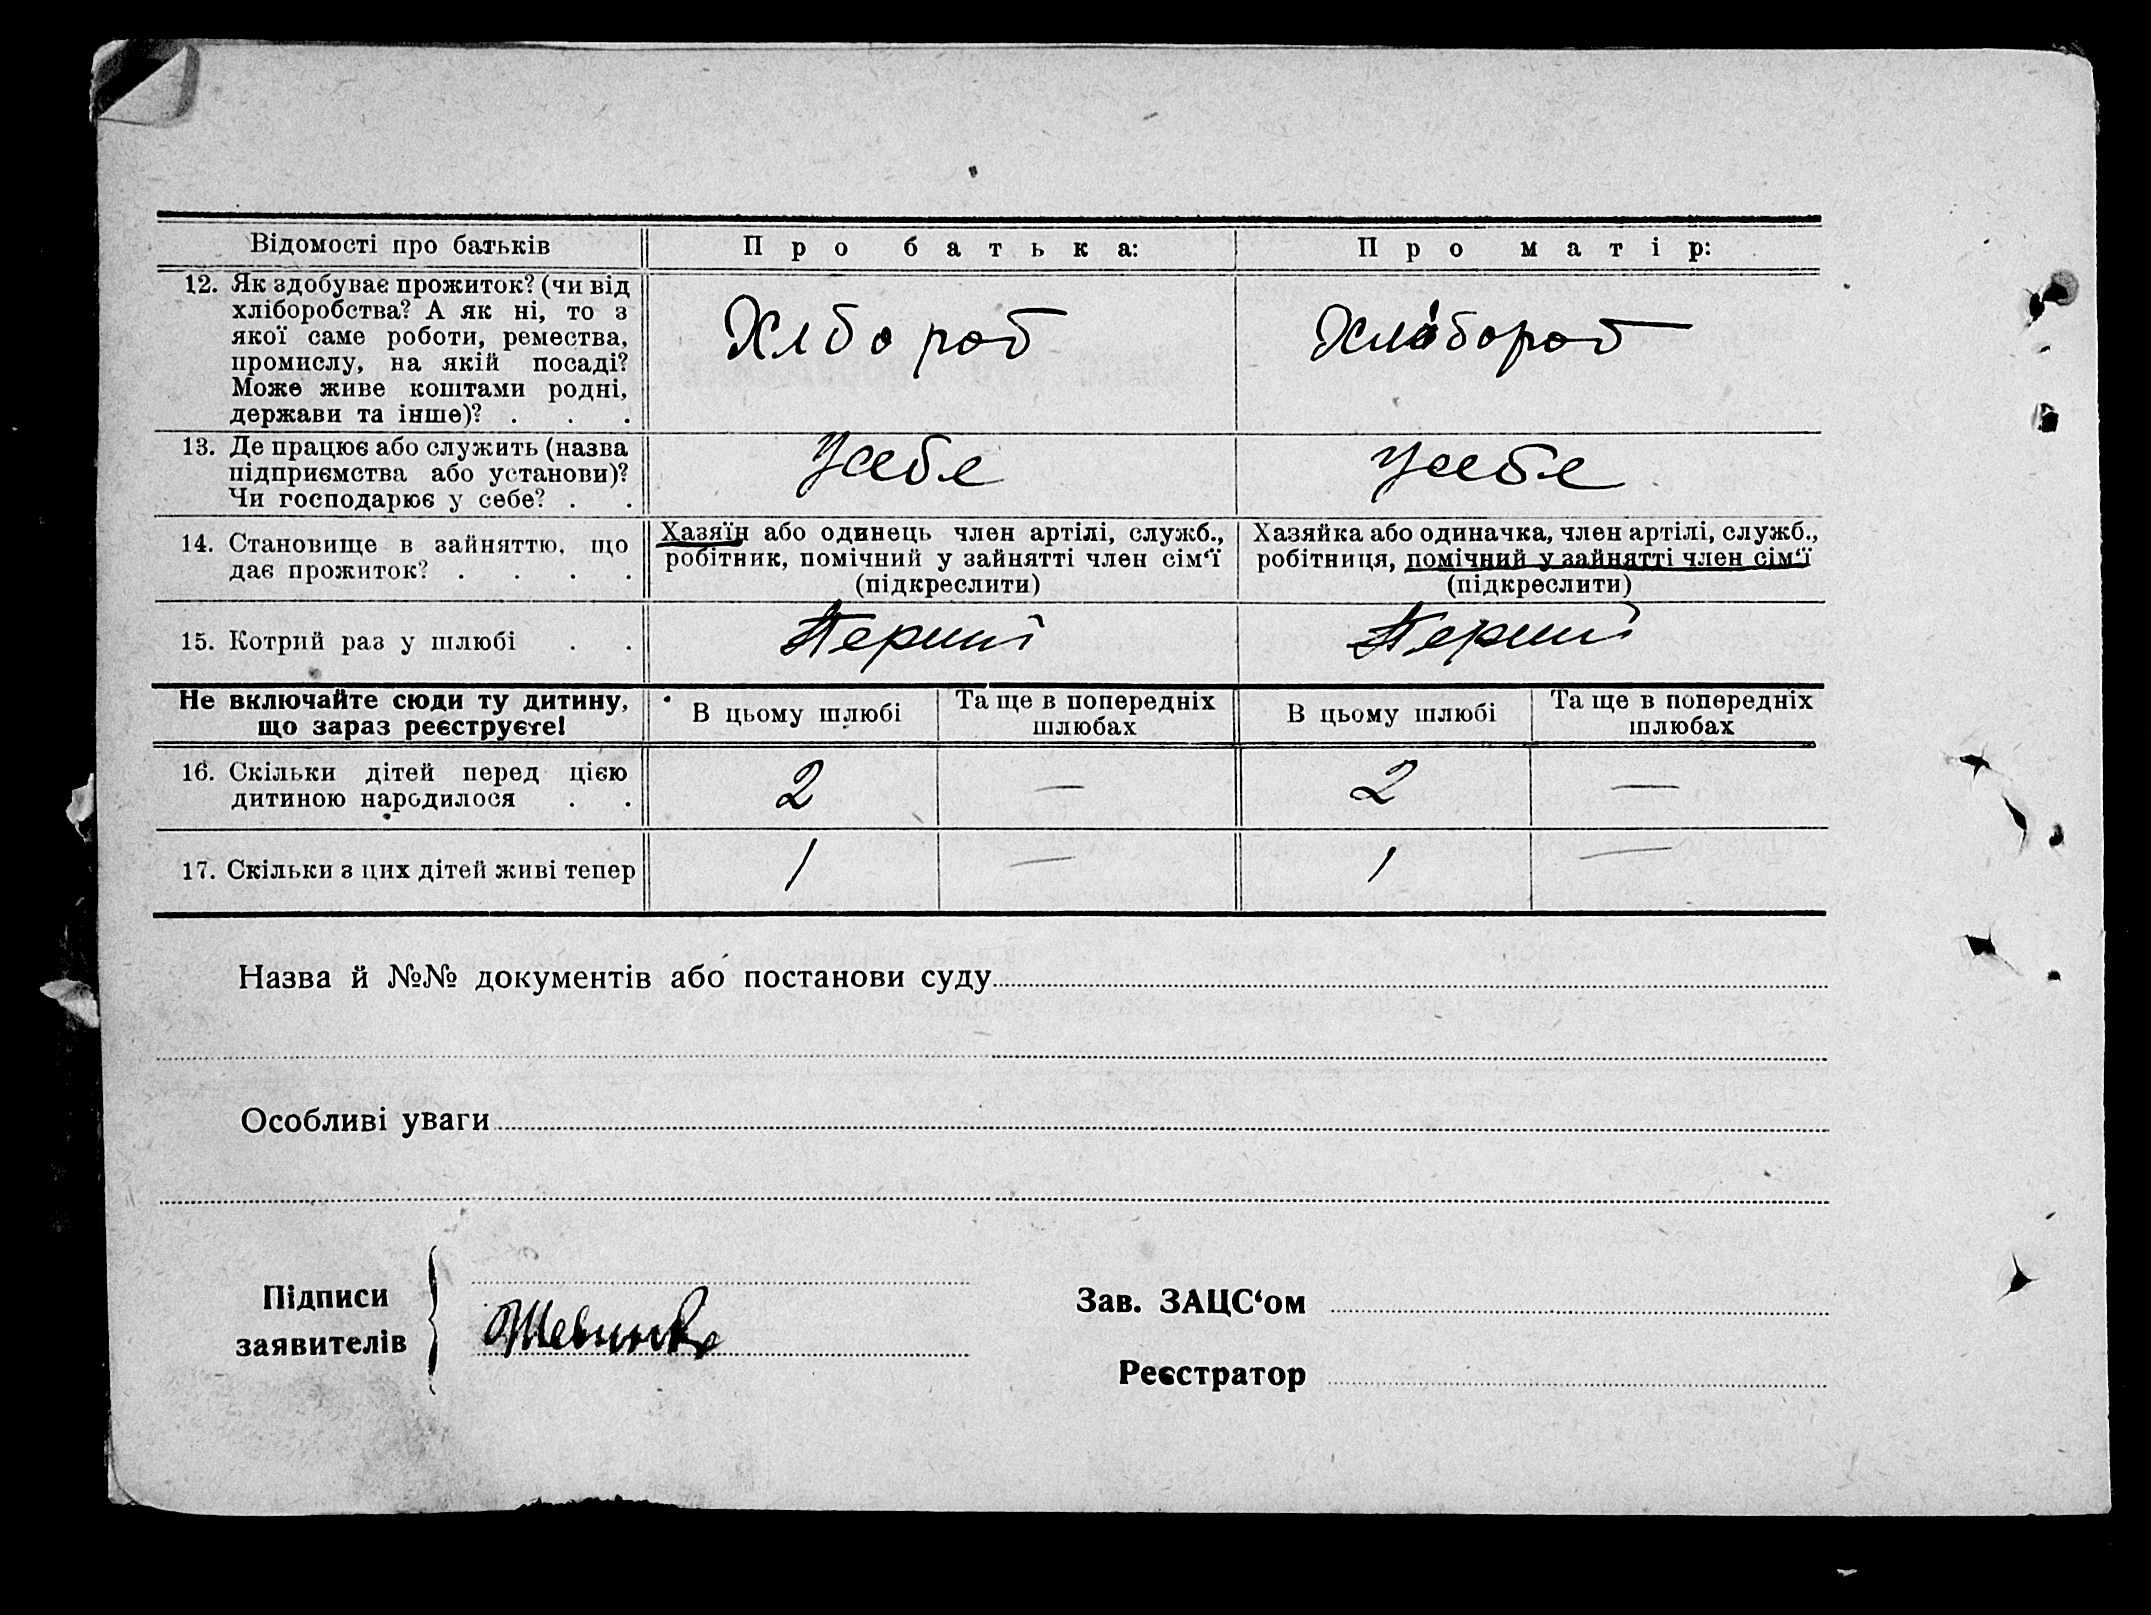 Відомості про батьків
Про батька:
Про матір:
12. Як здобуває прожиток? (чи від
хліборобства? А як ні, то з
якої саме роботи, ремества,
промислу, на якій посаді?
Може живе коштами родні,
держави та інше)? . . .
Хлбороб
Хлібороб
13. Де працює або служить (назва
підприємства або установи)?
Чи господарює у себе? . .
У себе
У себе
14. Становище в зайняттю, що
дає прожиток? . . . .
Хазяїн або одинець член артілі, служб.,
робітник, помічний у зайнятті член сім‘ї
(підкреслити)
Хазяйка або одиначка, член артілі, служб.,
робітниця, помічний у зайнятті член сім‘ї
(підкреслити)
15. Котрий раз у шлюбі . .
Перший
Перший
Не включайте сюди ту дитину,
що зараз реєструєте!
В цьому шлюбі
Та ще в попередніх
шлюбах
В цьому шлюбі
Та ще в попередніх
шлюбах
16. Скільки дітей перед цією
дитиною народилося . .
2
—
2
—
17. Скільки з цих дітей живі тепер
1
—
1
—
Назва й №№ документів або постанови суду
Особливі уваги
Підписи
заявителів
Зав. ЗАЦС‘ом
Реєстратор